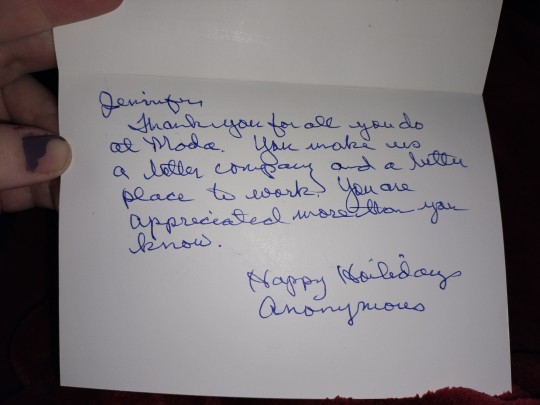 Jennifer,
Thank you for all you do
at Moda. You make us
a better company and a better
place to work. You are
appreciated more than you
know.
Happy Holidays
Anonymous